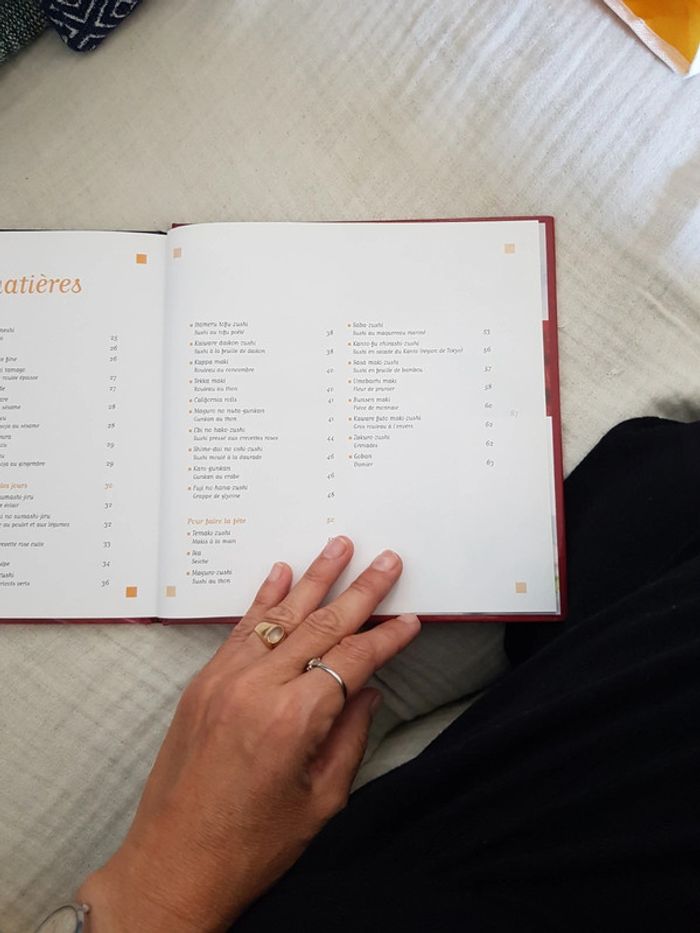 matières
25
26
26
27
27
sésame 28
soja au sésame 28
29
soja au gingembre 29
les jours 30
31
au poulet et aux légumes 32
crevette rose cuite 33
34
verts 36
Inomeru tofu-zushi
Sushi au tofu poêlé 38
Kaiware daikon-zushi
Sushi à la feuille de daikon 38
Kappa maki
Rouleau au concombre 40
Tekka maki
Rouleau au thon 40
California rolls 41
Maguro no nuta-gunkan
Gunkan au thon 41
Ebi no hako-zushi
Sushi pressé aux crevettes roses 44
Shime-dai no oshi-zushi
Sushi moulé à la daurade 46
Kani-gunkan
Gunkan au crabe 46
Fuji no hana-zushi
Grappe de glycine 48
Pour faire la fête 50
Temaki-zushi
Makis à la main
Ika
Seiche
Maguro-zushi
Sushi au thon
Saba-zushi
Sushi au maquereau mariné 55
Kanto-fu chirashi-zushi
Sushi en salade du Kanto (région de Tokyo) 56
Sasa maki-zushi
Sushi en feuille de bambou 57
Umebachi maki
Fleur de prunier 58
Bunsen maki
Pièce de monnaie 60
Kaware futo maki-zushi
Gros rouleau à l'envers 62
Zakuro-zushi
Grenades 62
Goban
Damier 63